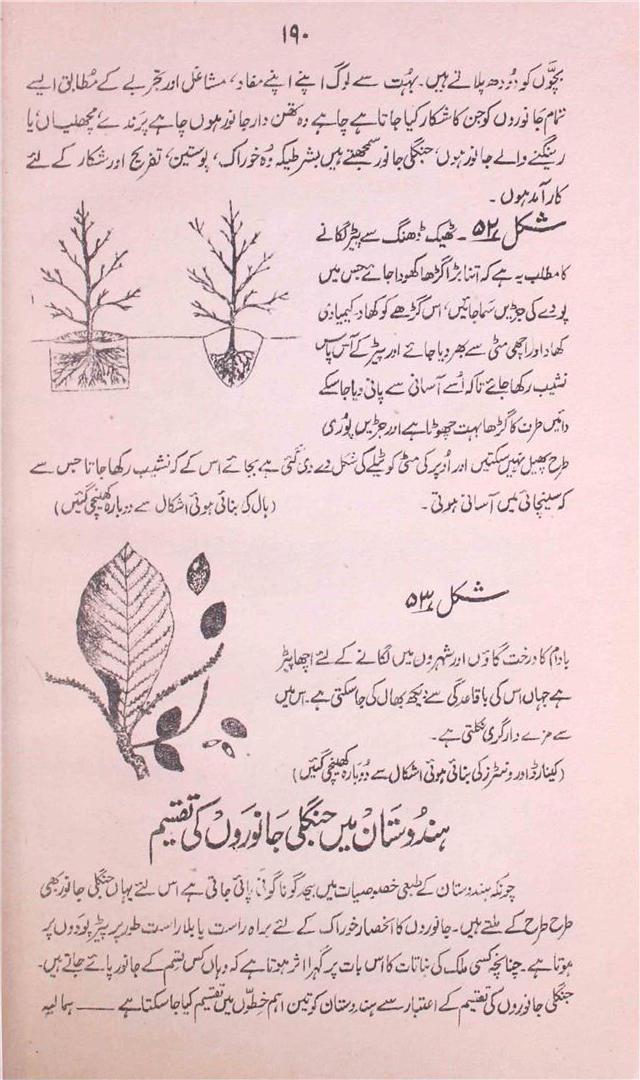 ۱۹۰
بچّوں کو دُودھ پلاتے ہیں۔ بہُت سے لوگ اپنے اپنے مفاد، مشاغل اور تجربے کے مُطابق ایسے
تمام جانوروں کو جن کا شکار کیا جاتا ہے چاہے وہ تھن دار جانور ہوں چاہے پرندے، مچھلیاں یا
رینگنے والے جانور ہوں، جنگلی جانور سمجھتے ہیں بشرطیکہ وُہ خوراک، پوستین، تفریح اور شکار کے لئے
کار آمد ہوں۔
شکل ۵۲ ۔ ٹھیک ڈھنگ سے پیڑ لگانے
کا مطلب یہ ہے کہ اتنا بڑا گڑھا کھودا جائے جس میں
پودے کی جڑیں سما جائیں، اس گڑھے کو کھاد، کیمیاوی
کھاد اور اچھی مٹی سے بھر دیا جائے اور پیڑ کے آس پاس
نشیب رکھا جائے تاکہ اُسے آسانی سے پانی دیا جا سکے
دائیں طرف کا گڑھا بہت چھوٹا ہے اور جڑیں پُوری
طرح پھیل نہیں سکتیں اور اُوپر کی مٹی کو ٹیلے کی شکل دے دی گئی ہے بجائے اس کے کہ نشیب رکھا جاتا جس سے
کہ سینچائی میں آسانی ہوتی۔ (بال کی بنائی ہوئی اشکال سے دوبارہ کھینچی گئیں)
شکل ۵۳
بادام کا درخت گاؤں اور شہروں میں لگانے کے لئے اچھا پیڑ
ہے جہاں اس کی باقاعدگی سے دیکھ بھال کی جا سکتی ہے۔ اس میں
سے مزے دار گری نکلتی ہے۔
(کینارڈ اور ونسٹرز کی بنائی ہوئی اشکال سے دُوبارہ کھینچی گئیں)
ہندُوستان میں جنگلی جانوروں کی تقسیم
چونکہ ہندوستان کے طبعی خصوصیات میں بیحد گوناگونی پائی جاتی ہے اس لئے یہاں جنگلی جانور بھی
طرح طرح کے ملتے ہیں۔ جانوروں کا انحصار خوراک کے لئے براہ راست یا بلا راست طور پر پیڑ پودوں پر
ہوتا ہے۔ چنانچہ کسی ملک کی نباتات کا اس بات پر گہرا اثر ہوتا ہے کہ وہاں کس قسم کے جانور پائے جاتے ہیں۔
جنگلی جانوروں کی تقسیم کے اعتبار سے ہندوستان کو تین اہم خطّوں میں تقسیم کیا جا سکتا ہے —— ہمالیہ